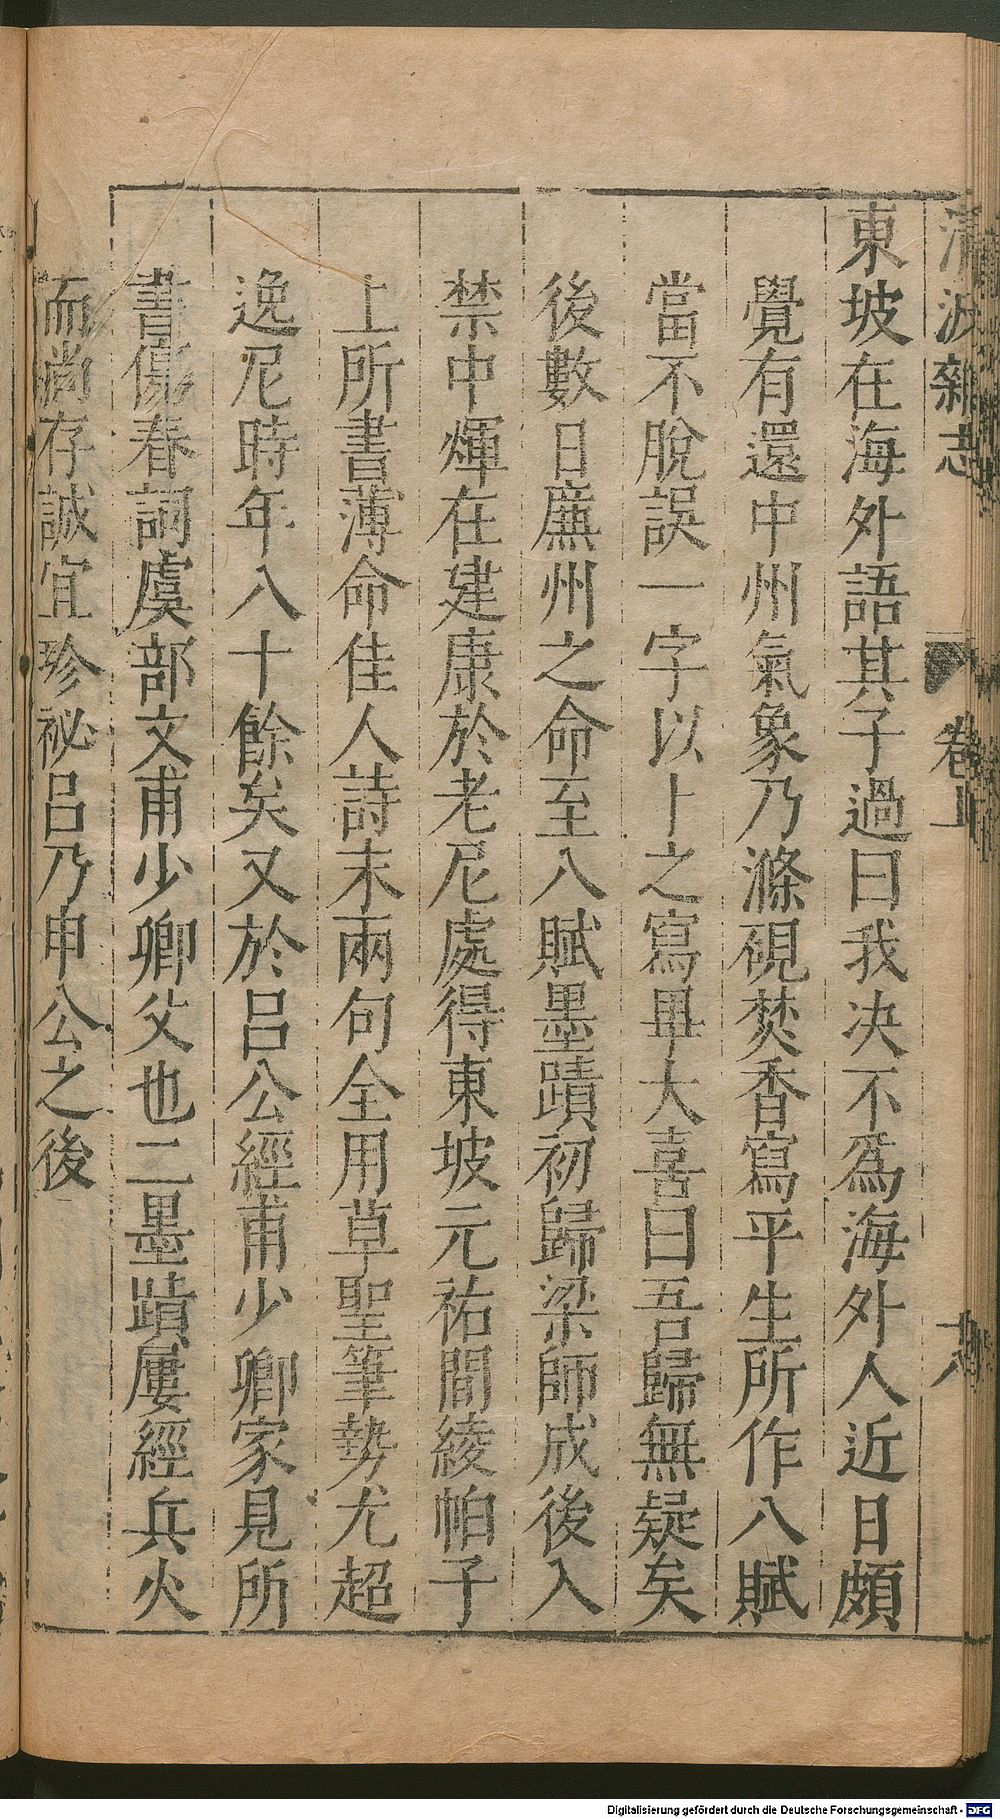 清波雜志 卷五 十八
東坡在海外語其子過曰我決不爲海外人近日頗
覺有還中州氣象乃滌硯焚香寫平生所作八賦
當不脫誤一字以卜之寫畢大喜曰吾歸無疑矣
後數日廉州之命至八賦墨蹟初歸梁師成後入
禁中煇在建康於老尼處得東坡元祐間綾帕子
上所書薄命佳人詩末兩句全用草聖筆勢尤超
逸尼時年八十餘矣又於呂公經甫少卿家見所
書傷春詞虞部文甫少卿父也二墨蹟屢經兵火
而尚存誠宜珍祕呂乃申公之後
Digitalisierung gefördert durch die Deutsche Forschungsgemeinschaft - DFG